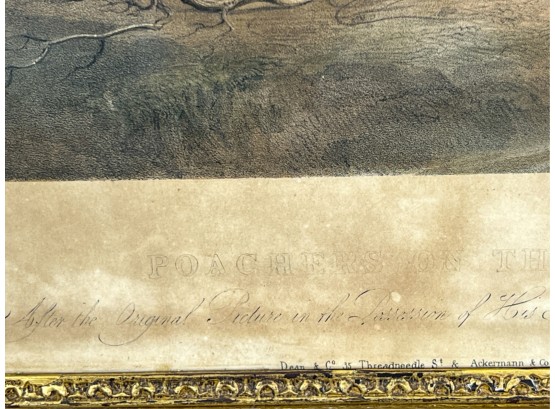 POACHERS ON TH
After the Original Picture in the Possession of His
Dean & Co. Threadneedle St. & Ackermann & Co